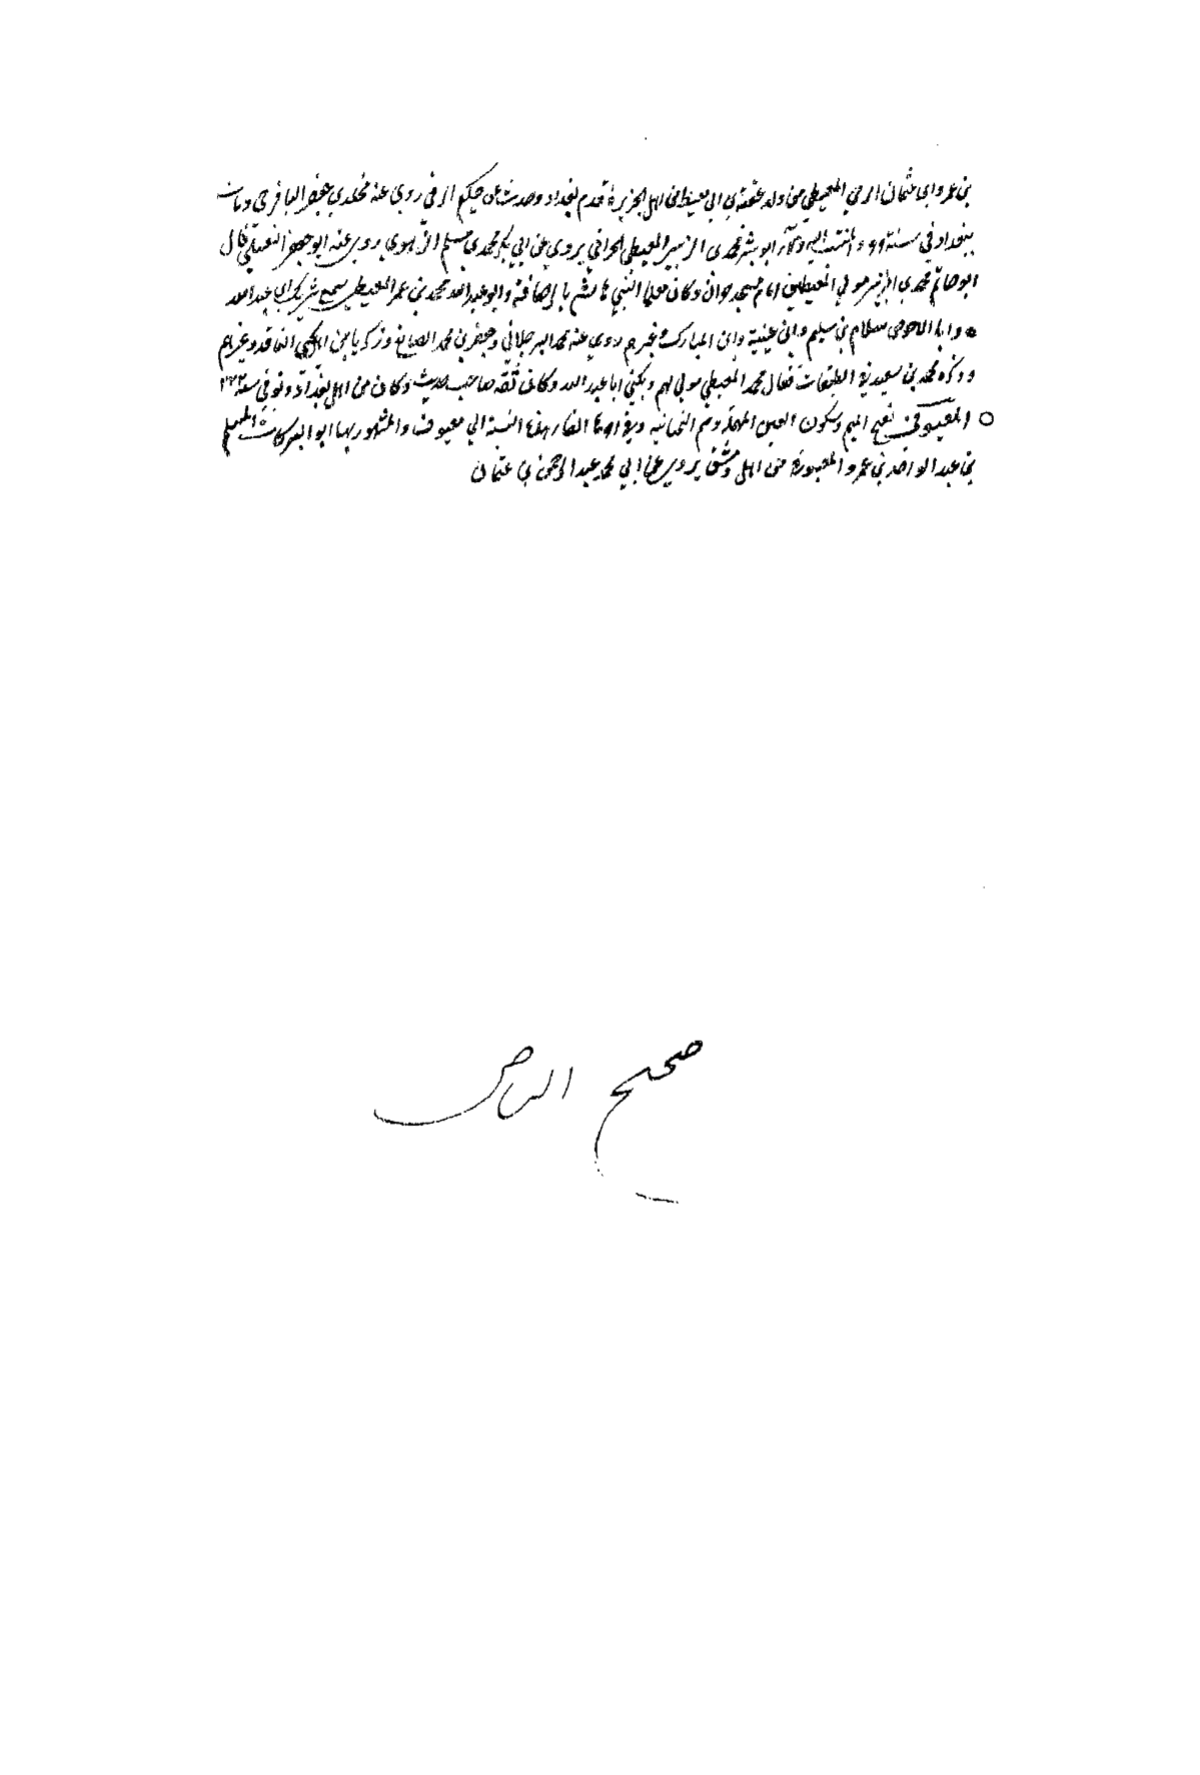 بن عمرو ابي عثمان الرقي المعيطي من ولد عقبة بن ابي معيط من اهل الجزيرة قدم بغداد وحدث عن حكيم الرقي روى عنه مخلد بن جعفر الباقرحي ومات
ببغداد في سنة ابو بشر محمد بن الزبير المعيطي الحراني يروي عن ابي بكر محمد بن مسلم الزهري روى عنه ابو جعفر النفيلي قال
ابو حاتم محمد بن الزبير مولى المعيطين امام مسجد حران وكان معلما لبني هاشم بالرصافة وابو عبد الله محمد بن عمر المعيطي سمع شريك بن عبد الله
وابا الاحوص سلام بن سليم وابن عيينة وابن المبارك وغيرهم روى عنه محمد البرجلاني وجعفر بن محمد الصايغ وزكريا بن يحيى الناقد وغيرهم
وذكره محمد بن سعد في الطبقات فقال محمد المعيطي مولى لهم ويكنى ابا عبد الله وكان ثقة صاحب حديث وكان من اهل بغداد وتوفي سنة ٢٢٢
المعيوفي بفتح الميم وسكون العين المهملة وضم التحتانية وفي اخرها الفاء هذه النسبة الى معيوف والمشهور بها ابو البركات المسلم
بن عبد الواحد بن عمرو المعيوفي من اهل دمشق يروي عن ابي محمد عبد الرحمن بن عثمان
صحيح